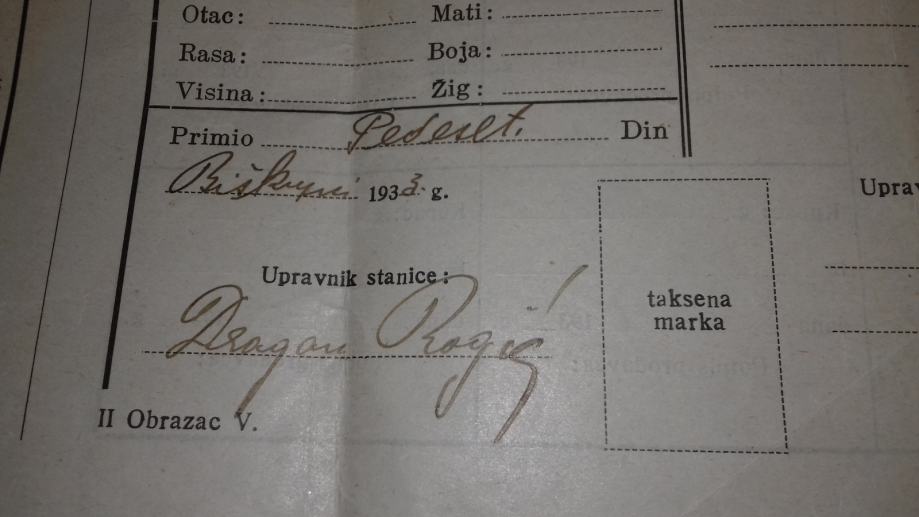 Otac: Mati:
Rasa: Boja:
Visina: Žig:
Primio Pedeset. Din
1933. g.
Uprav
Upravnik stanice:
taksena
marka
Dragan Rogić
II Obrazac V.